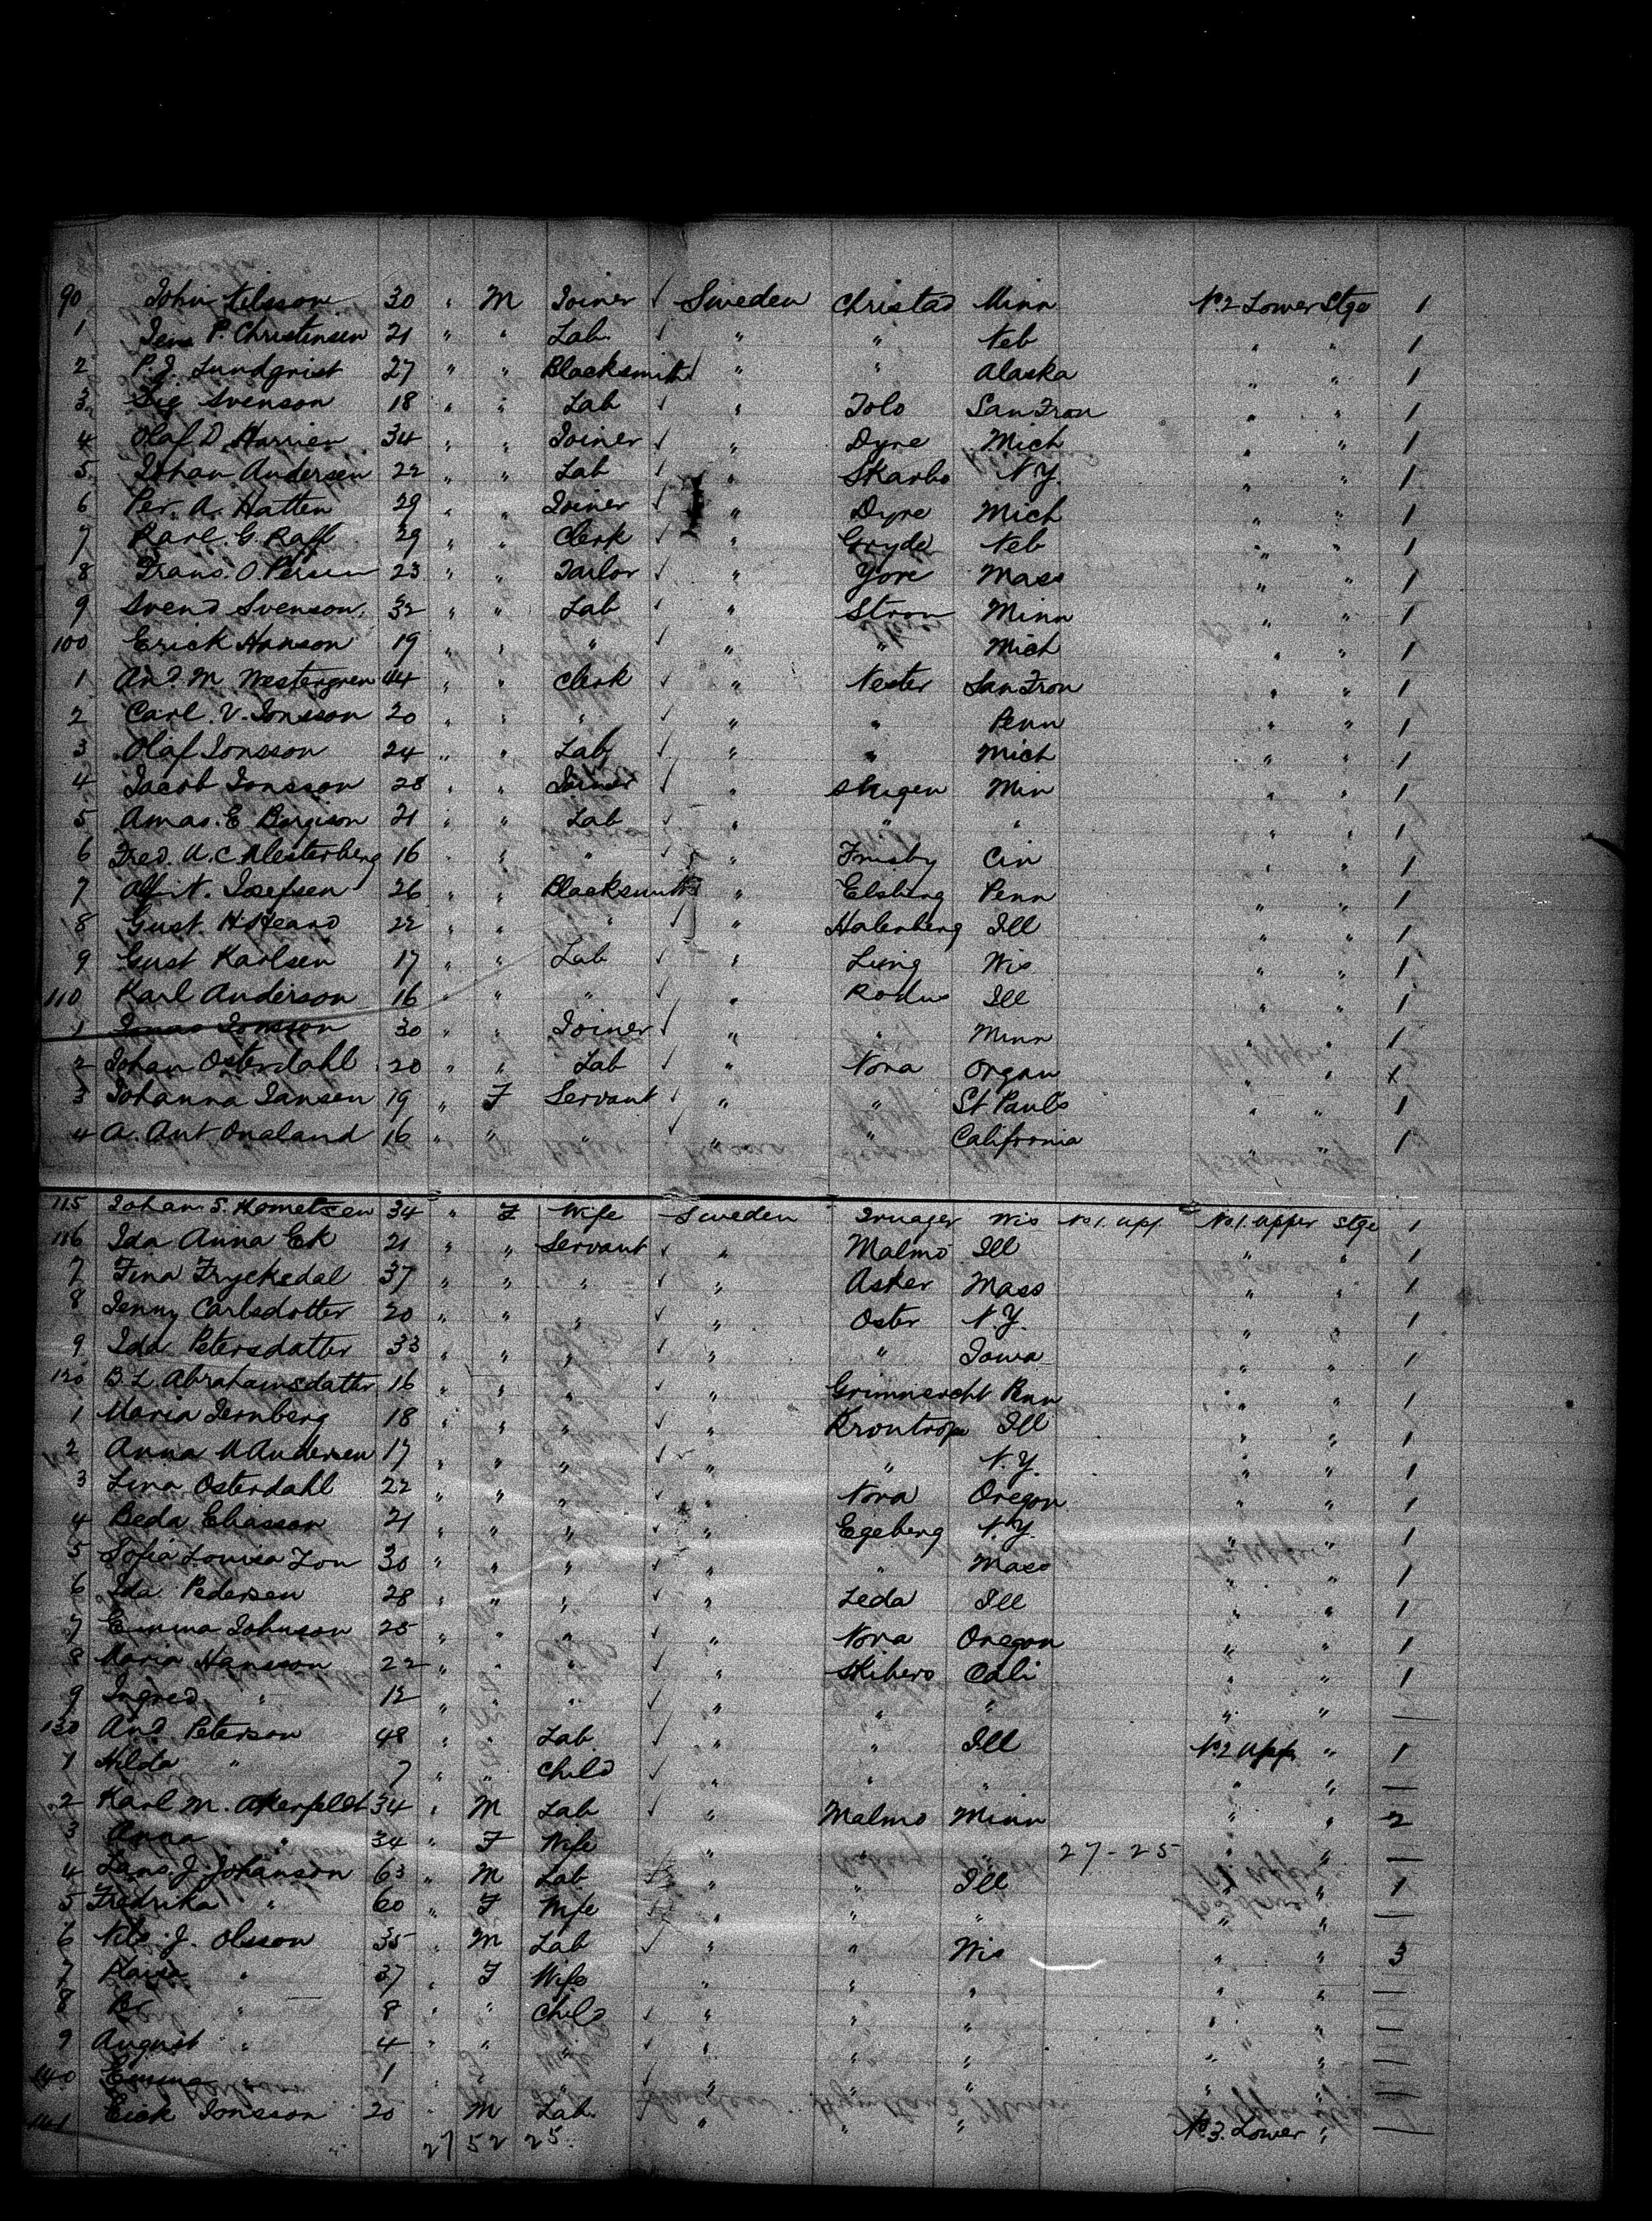 90 John Nilsson 30 " M Joiner ✓ Sweden Christad Minn No. 2 Lower Stge 1
1 Jens P. Christensen 21 " " Lab. ✓ " " Neb " " 1
2 P. J. Lundqrist 27 " " Blacksmith " " Alaska " " 1
3 Svenson 18 " " Lab ✓ " Tolo San Fran " " 1
4 Olaf D. 34 " " Joiner ✓ " Dyre Mich " " 1
5 Johan Andersen 22 " " Lab ✓ " Skarbo N.Y. " " 1
6 Per. A. Hatten 29 " " Joiner ✓ " Dyre Mich " " 1
7 Karl. G. Raff 29 " " Clerk ✓ " Gryde Neb " " 1
8 Frans. O. Persen 23 " " Tailor ✓ " Yore Mass " " 1
9 Svend Svenson 32 " " Lab ✓ " Strom Minn " " 1
100 Erick Hanson 19 " " " ✓ " " Mich " " 1
1 And. M. Westergren 44 " " Clerk ✓ " Nester San Fran " " 1
2 Carl. V. Jonsson 20 " " " ✓ " " Penn " " 1
3 Olaf Jonsson 24 " " Lab ✓ " " Mich " " 1
4 Jacob Jonsson 28 " " Joiner ✓ " Skigen Min " " 1
5 Amas. E. 21 " " Lab ✓ " " " " " 1
6 Fred. A. C. 16 " " " ✓ " Cin " " 1
7 Josefsen 26 " " Blacksmith " Elsberg Penn " " 1
8 Gust. 22 " " " ✓ " Halenberg Ill " " 1
9 Gust Karlsen 17 " " Lab ✓ " Wis " " 1
110 Karl Anderson 16 " " " ✓ " Ill " " 1
1 Jonas Jonsson 30 " " Joiner ✓ " " Minn " " 1
2 Johan Osterdahl 20 " " Lab ✓ " Nora Organ " " x
3 Johanna Jansen 19 " F Servant ✓ " " St Pauls " " 1
4 A. Ant Onaland 16 " " " ✓ " " California " " 1
115 Johan. S. 34 " F Wife Sweden Wis No 1. upp. No 1. upper Stge 1
116 Ida Anna Ek 21 " " Servant ✓ " Malmo Ill " " 1
7 Fina Fryckedal 37 " " " ✓ " Asker Mass " " 1
8 Jenny Carlsdotter 20 " " " ✓ " Oster N.Y. " " 1
9 Ida Petersdatter 33 " " " ✓ " " Iowa " " 1
120 B. L. Abrahamsdatter 16 " " " ✓ " Penn " " 1
1 Maria Jernberg 18 " " " ✓ " Krontrop Ill " " 1
2 Anna M Andersen 17 " " " ✓ " " N.Y. " " 1
3 Lina Osterdahl 22 " " " ✓ " Nora Oregon " " 1
4 Beda Eliasson 21 " " " ✓ " Egeberg N.Y. " " 1
5 Sofia Lovisa Zon 30 " " " ✓ " " Mass " " 1
6 Ida Pedersen 28 " " " ✓ " Leda Ill " " 1
7 Emma Johnson 25 " " " ✓ " Nora Oregon " " 1
8 Maria Hansson 22 " " " ✓ " Skibero Cali " " 1
9 Ingred " 12 " " " ✓ " " " " " —
130 And. Peterson 48 " " Lab ✓ " " Ill No. 2 upp " 1
1 Hilda " 7 " " Child ✓ " " " " " —
2 Karl M. Akerfeldt 34 " M Lab ✓ " Malmo Minn " " 2
3 Anna " 34 " F Wife " " " 27 - 25 " " —
4 Lars. J. Johanson 63 " M Lab " " Ill " " 1
5 Fredrika " 60 " F Wife " " " " " —
6 Nils. J. Olsson 35 " M Lab ✓ " " Wis " " 3
7 " 37 " F Wife " " " " " —
8 Per " 8 " " Child ✓ " " " " " —
9 August " 4 " " " ✓ " " " " " —
140 Emma " 1 " " " ✓ " " " " " —
141 Erick Jonsson 20 " M Lab. ✓ " " " No. 3. Lower " —
27 52 25